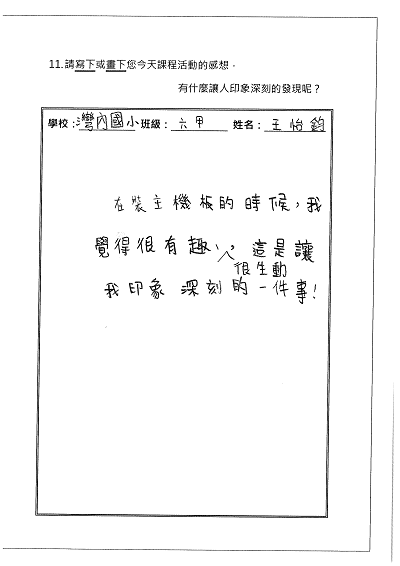 11.請寫下或畫下您今天課程活動的感想，
有什麼讓人印象深刻的發現呢？
學校：灣內國小班級：六甲 姓名：王怡鈞
在裝主機板的時候，我
覺得很有趣，這是讓
很生動
我印象深刻的一件事！